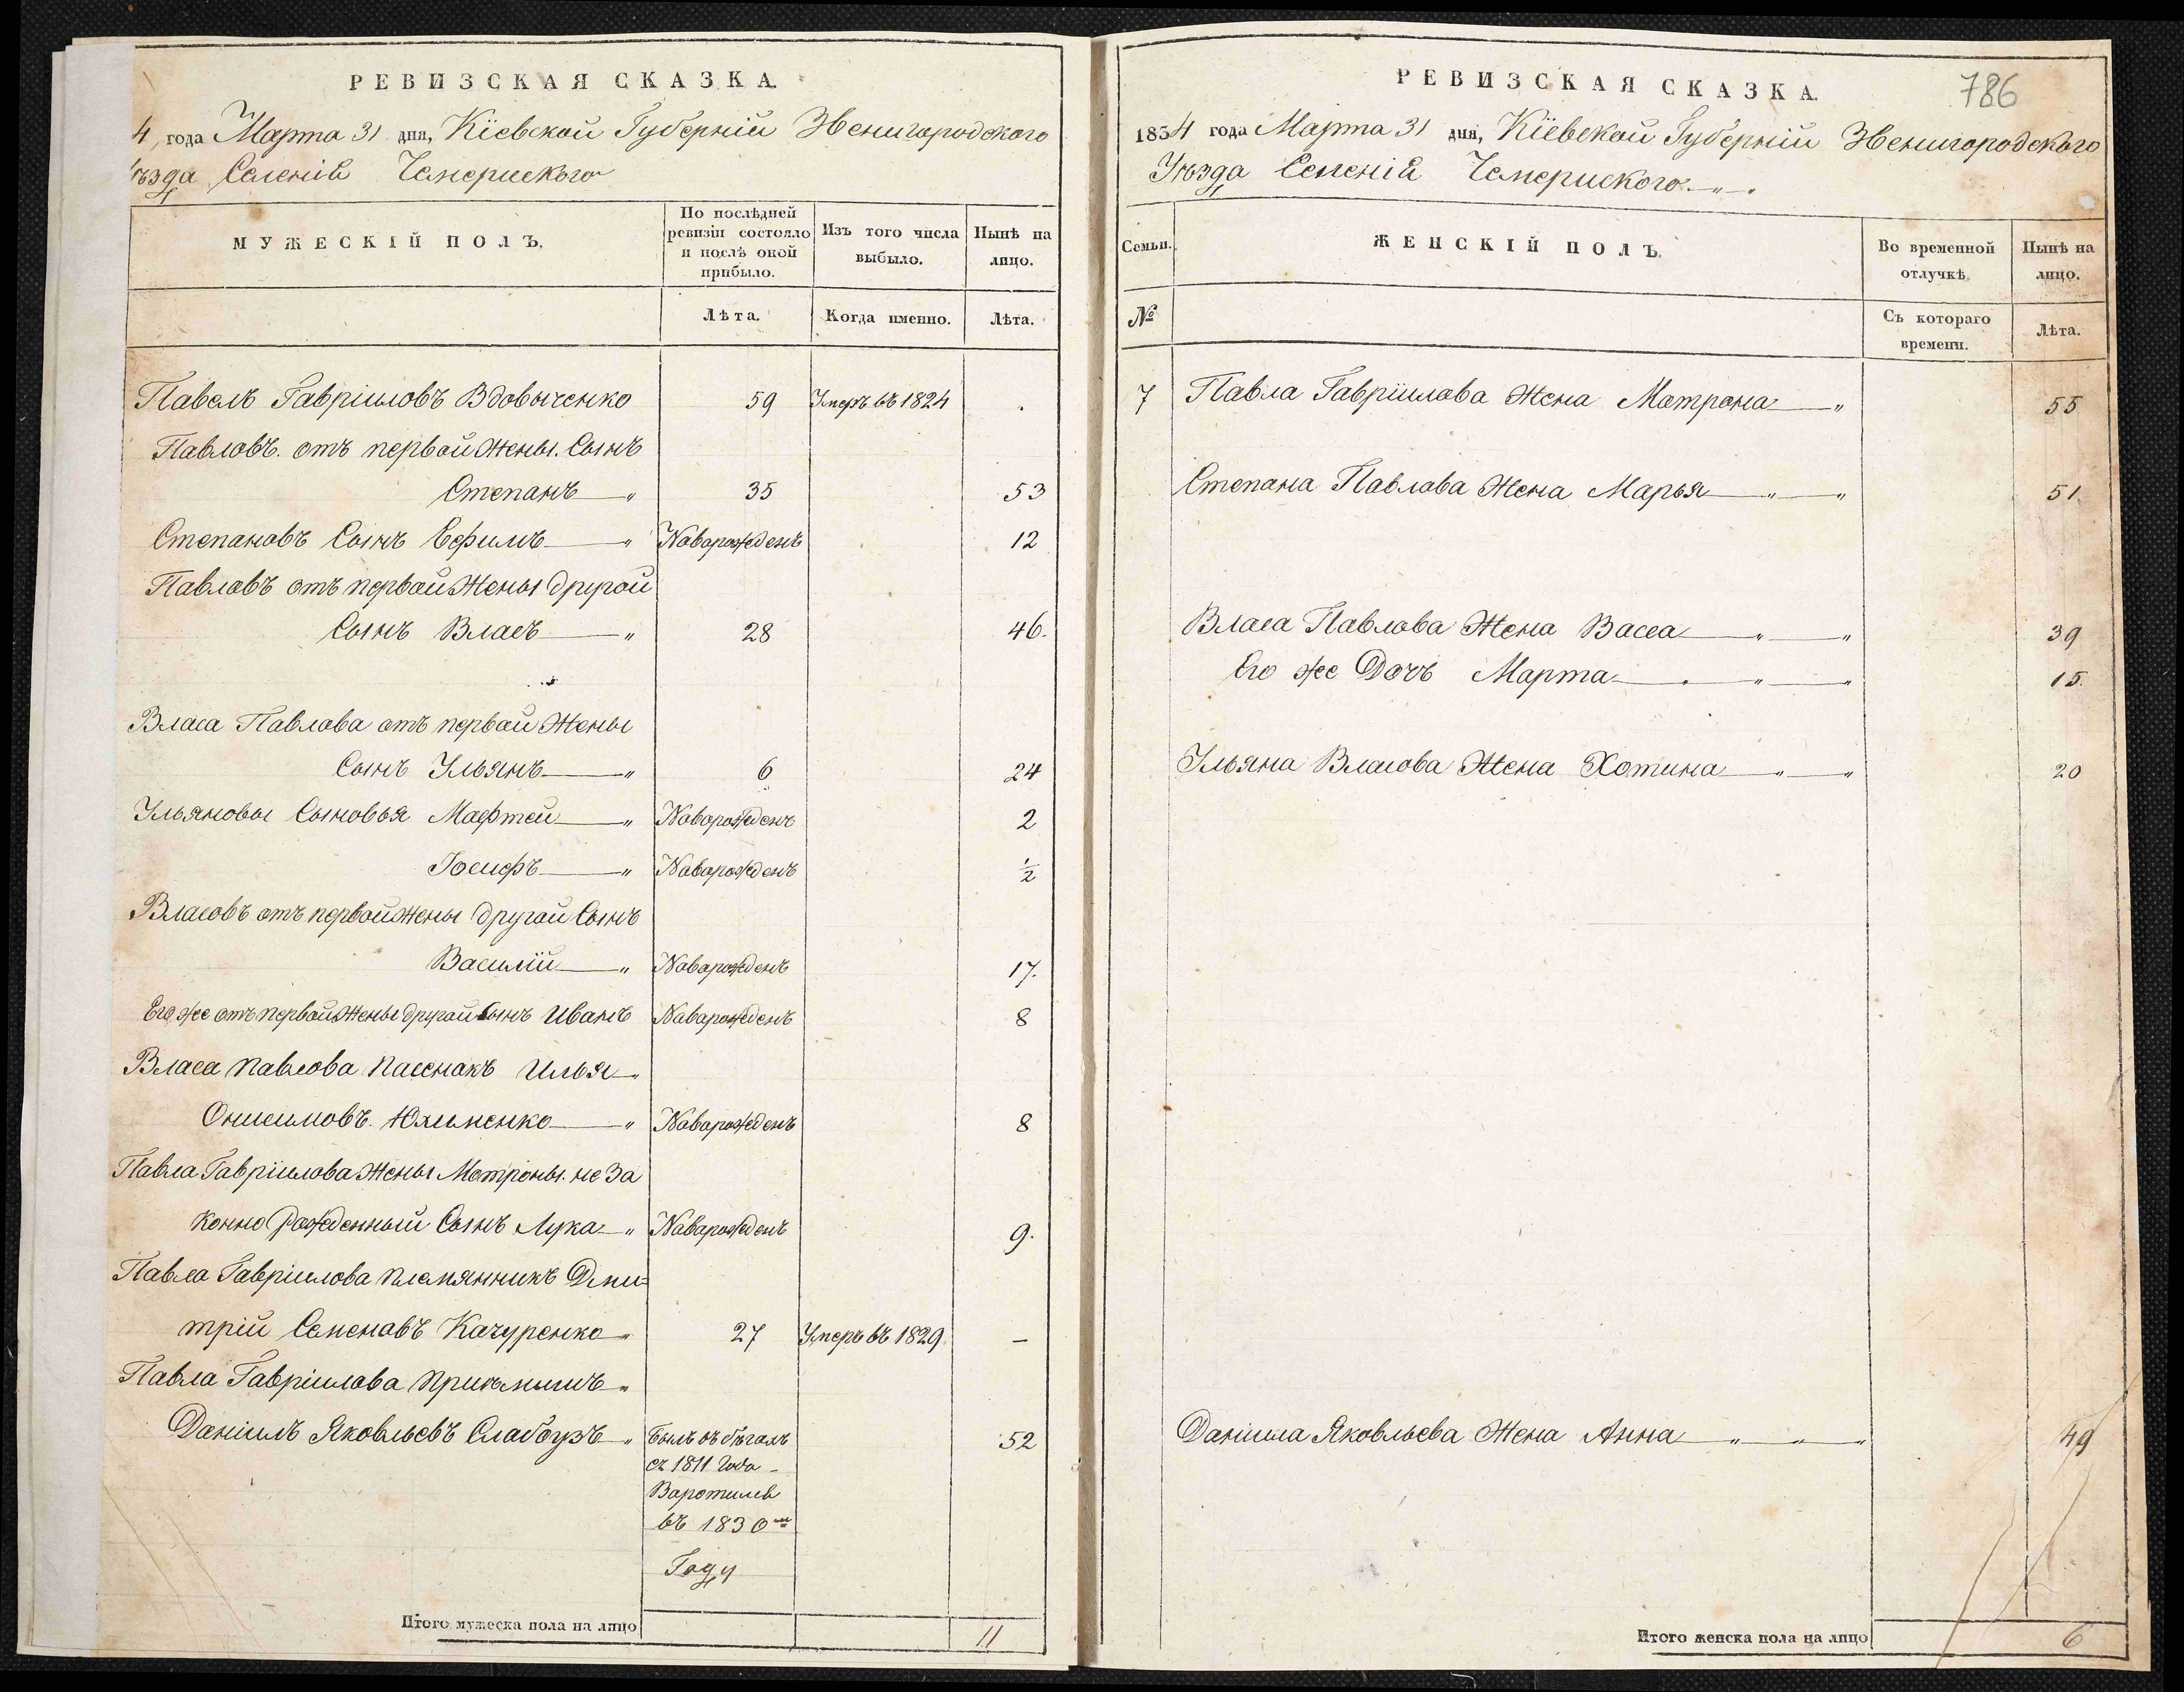 РЕВИЗСКАЯ СКАЗКА.
4 года Марта 31 дня, Кіевской Губерніи Звенигородского
ѣзда Селенія Чемериского
МУЖЕСКІЙ ПОЛЪ.
По послѣдней ревизіи состояло и послѣ оной прибыло.
Изъ того числа выбыло.
Нынѣ на лицо.
Лѣта.
Когда именно.
Лѣта.
Павелъ Гавріиловъ Вдовыченко 59 Умеръ въ 1824
Павловъ. отъ первой жены. Сынъ
Степанъ 35 53
Степановъ Сынъ Ефимъ Наварожденъ 12
Павловъ отъ первой жены другой
Сынъ Власъ 28 46.
Власа Павлова отъ первой жены
Сынъ Ульянъ 6 24
Ульяновы Сыновья Мафтей Наварожденъ 2
Іосифъ Наварожденъ 1/2
Власовъ отъ первой жены другой Сынъ
Василій Наварожденъ 17.
Его же отъ первой жены другой Сынъ Иванъ Наварожденъ 8
Власа Павлова Пасенакъ Илья
Онисимовъ. Юхименко Наварожденъ 8
Павла Гавріилова жены Матроны. не за
конно рожденный Сынъ Лука Наварожденъ 9.
Павла Гавріилова племянникъ Дми=
трій Семеновъ Качуренко 27 Умеръ въ 1829. —
Павла Гавріилова приемышъ
Даніилъ Яковлевъ Слабоузъ Былъ въ бѣгахъ 52
съ 1811 года
Варотился
въ 1830 м
Году
Итого мужеска пола на лицо 11
РЕВИЗСКАЯ СКАЗКА.
786
1834 года Марта 31 дня, Кіевской Губерніи Звенигородского
Уѣзда Селенія Чемериского
Семьи.
ЖЕНСКІЙ ПОЛЪ.
Во временной отлучкѣ
Нынѣ на лицо.
№
Съ котораго времени.
Лѣта.
7 Павла Гавріилова Жена Матрона 55
Степана Павлова Жена Марья 51
Власа Павлова Жена Васса 39
Его же Дочь Марта 15.
Ульяна Власова Жена Хотина 20
Даніила Яковльева Жена Анна 49
Итого женска пола на лицо 6